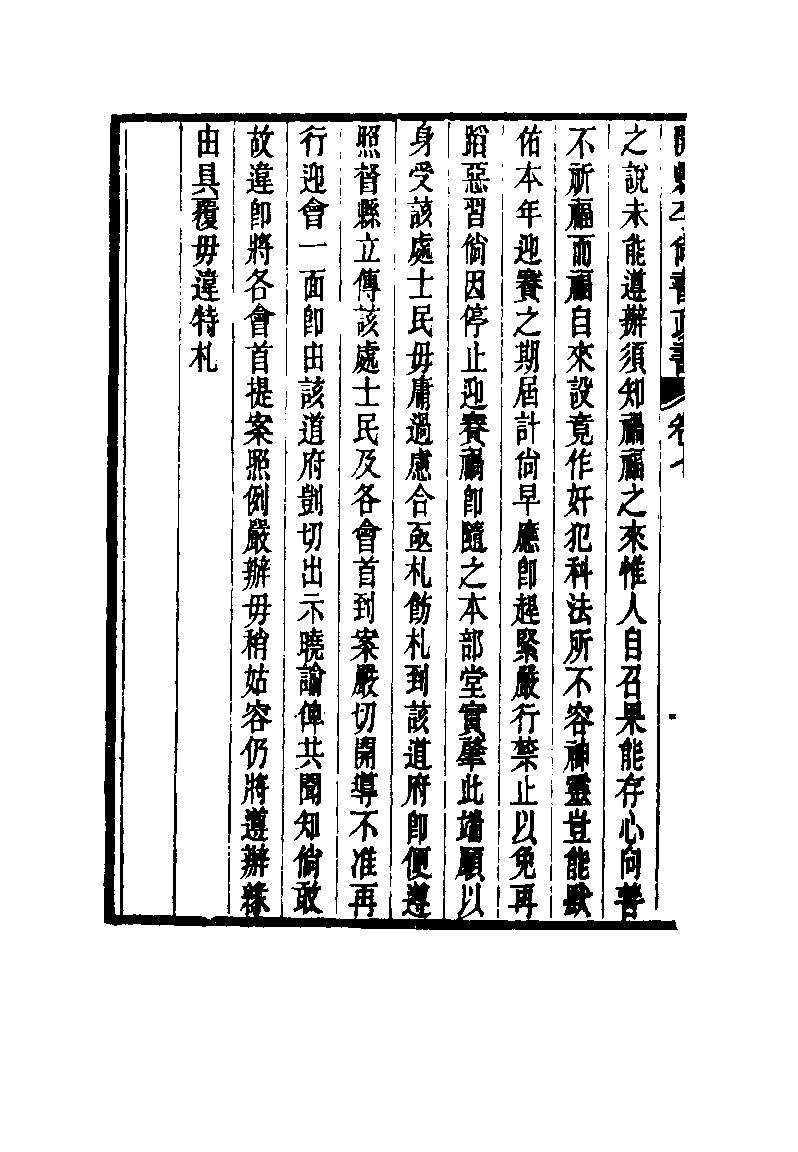 尙書政書 卷七
之說未能遵辦須知禍福之來惟人自召果能存心向善
不祈福而福自來設竟作奸犯科法所不容神靈豈能默
佑本年迎賽之期屆計尙早應卽趕緊嚴行禁止以免再
蹈惡習倘因停止迎賽禍卽隨之本部堂實肇此端願以
身受該處士民毋庸過慮合亟札飭札到該道府卽便遵
照督縣立傳該處士民及各會首到案嚴切開導不准再
行迎會一面卽由該道府剴切出示曉諭俾共聞知倘敢
故違卽將各會首提案照例嚴辦毋稍姑容仍將遵辦緣
由具覆毋違特札